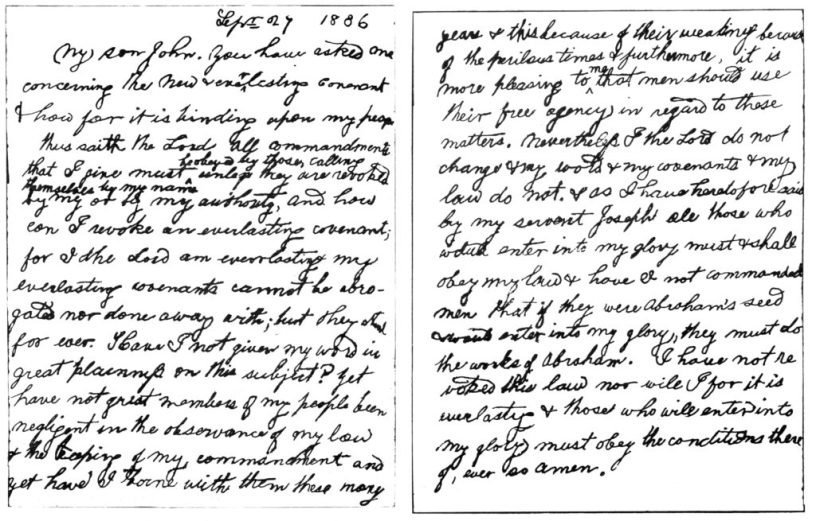 Sept 27 1886
My son John. You have asked me
concerning the New & everlasting covenant
& how far it is binding upon my people
thus saith the Lord all commandments
that I give must be obeyed by those calling
themselves by my name unless they are revoked
by my or by my authority, and how
can I revoke an everlasting covenant;
for I the Lord am everlasting & my
everlasting covenants cannot be abro-
gated nor done away with; but they stand
for ever. Have I not given my word in
great plainness on this subject? Yet
have not great numbers of my people been
negligent in the observance of my law
& the keeping of my commandment and
yet have I borne with them these many
years & this because of their weakness because
of the perilous times & furthermore, it is
more pleasing to me that men should use
their free agency in regard to these
matters. Nevertheless I the Lord do not
change & my word & my covenants & my
law do not. & as I have heretofore said
by my servant Joseph all those who
would enter into my glory must & shall
obey my law & have I not commanded
men that if they were Abraham's seed
& would enter into my glory, they must do
the works of Abraham. I have not re
voked this law nor will I for it is
everlasting & those who will enter into
my glory must obey the conditions there
of, even so amen.